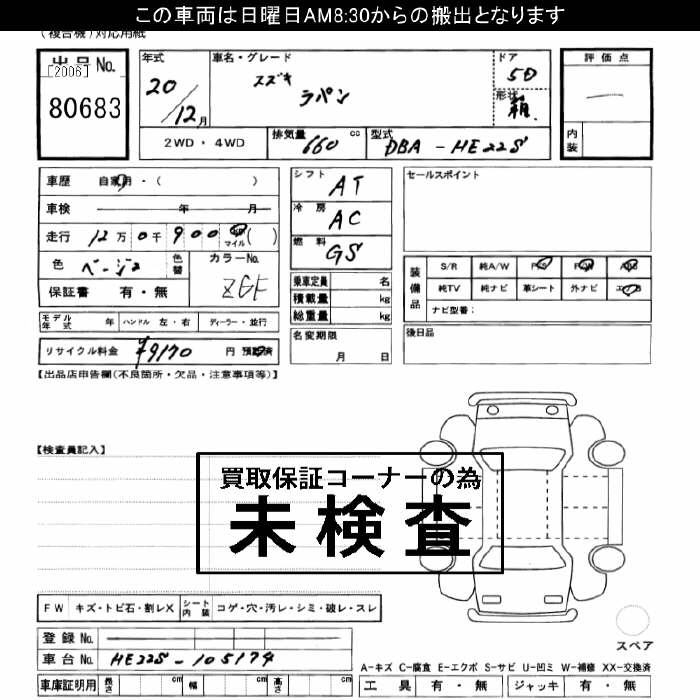 この車両は日曜日AM8:30からの搬出となります
(複合機)対応用紙
出品No.
[2006]
80683
年式
20/12月
車名・グレード
スズキ
ラパン
ドア
5D
形状
箱
評価点
—
内装
2WD・4WD
排気量 660 cc
型式 DBA-HE22S
車歴 自家用・( )
車検 年 月
走行 12万0千900 マイル( )
色 ベージュ 色替
カラーNo. ZGF
保証書 有・無
シフト AT
冷房 AC
燃料 GS
乗車定員 名
積載量 kg
総重量 kg
セールスポイント
装備品
S/R 純A/W P/S P/W ABS
純TV 純ナビ 革シート 外ナビ エアB
ナビ型番:
モデル年式 年 ハンドル 左・右 ディーラー・並行
リサイクル料金 ¥9170 円 預託済
名変期限
月 日
後日品
【出品店申告欄(不良箇所・欠品・注意事項等)】
【検査員記入】
買取保証コーナーの為
未検査
FW キズ・トビ石・割レX シート内装 コゲ・穴・汚レ・シミ・破レ・スレ
登録No.
車台No. HE22S-105174
スペア
A-キズ C-腐食 E-エクボ S-サビ U-凹ミ W-補修 XX-交換済
車庫証明用 長さ cm 幅 cm 高さ cm
工具 有・無 ジャッキ 有・無